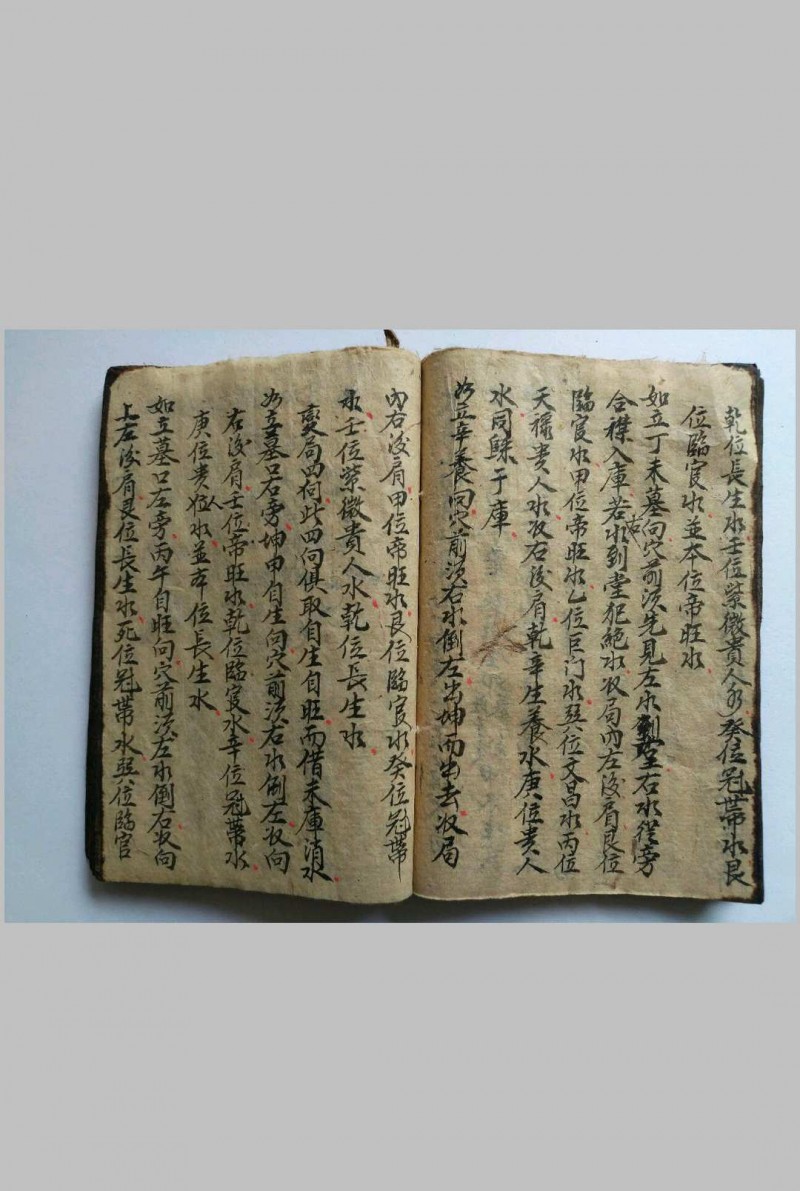 乾位長生水壬位紫微貴人水癸位冠帶水艮
位臨官水並本位帝旺水
如立丁未墓向穴前須先見左水到堂右水從旁
合襟入庫若右水到堂犯絕水收局內左後肩艮位
臨官水甲位帝旺水乙位巨门水巽位文昌水丙位
天祿貴人水收右後肩乾辛生養水庚位貴人
水同歸于庫
如立辛養向穴前須右水倒左出坤而出去收局
內右後肩甲位帝旺水艮位臨官水癸位冠帶
水壬位紫微貴人水乾位長生水
變局四向此四向俱取自生自旺而借未庫消水
如立墓口右旁坤申自生向穴前須右水倒左收向
右後肩壬位帝旺水乾位臨官水辛位冠帶水
庚位貴人水並本位長生水
如立墓口左旁丙午自旺向穴前須左水倒右收向
上左後肩艮位長生水死位冠帶水巽位臨官